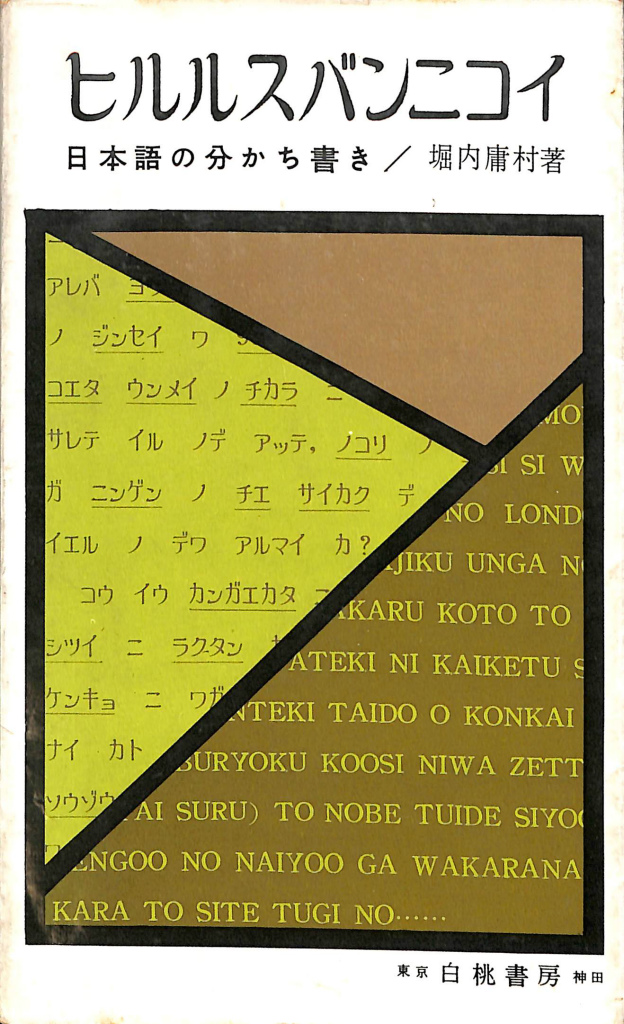 ヒルルスバンニコイ
日本語の分かち書き／堀内庸村著
アレバ
ノ ジンセイ ワ
コエタ ウンメイ ノ チカラ ニ
サレテ イル ノデ アッテ, ノコリ ノ
ガ ニンゲン ノ チエ サイカク デ
イエル ノ デワ アルマイ カ?
コウ イウ カンガエカタ
シツイ ニ ラクタン
ケンキョ ニ ワガ
ナイ カト
ソウゾウ
MO
SI W
NO LOND
JIKU UNGA NO
AKARU KOTO TO
ATEKI NI KAIKETU S
NTEKI TAIDO O KONKAI
BURYOKU KOOSI NIWA ZETT
TAI SURU) TO NOBE TUIDE SIYOO
ENGOO NO NAIYOO GA WAKARANA
KARA TO SITE TUGI NO……
東京 白桃書房 神田